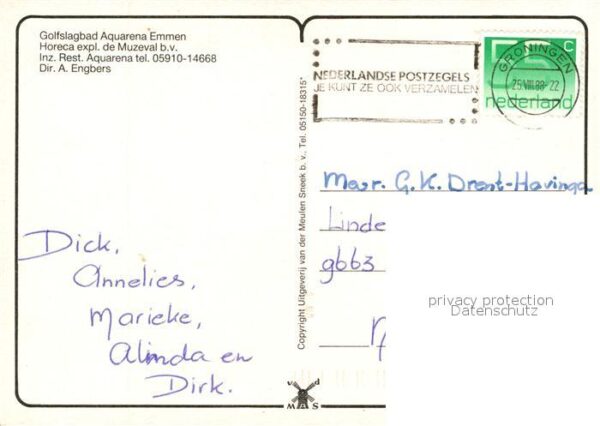 Golfslagbad Aquarena Emmen
Horeca expl. de Muzeval b.v.
Inz. Rest. Aquarena tel. 05910-14668
Dir. A. Engbers
Copyright Uitgeverij van der Meulen Sneek b.v., Tel. 05150-18315*
NEDERLANDSE POSTZEGELS
JE KUNT ZE OOK VERZAMELEN
GRONINGEN
25.VIII.88-22
75 c
nederland
Mevr. G.K. Drent-Havinga
Linde
9663
privacy protection
Datenschutz
Dick,
Annelies,
Marieke,
Alinda en
Dirk.
v d
M S